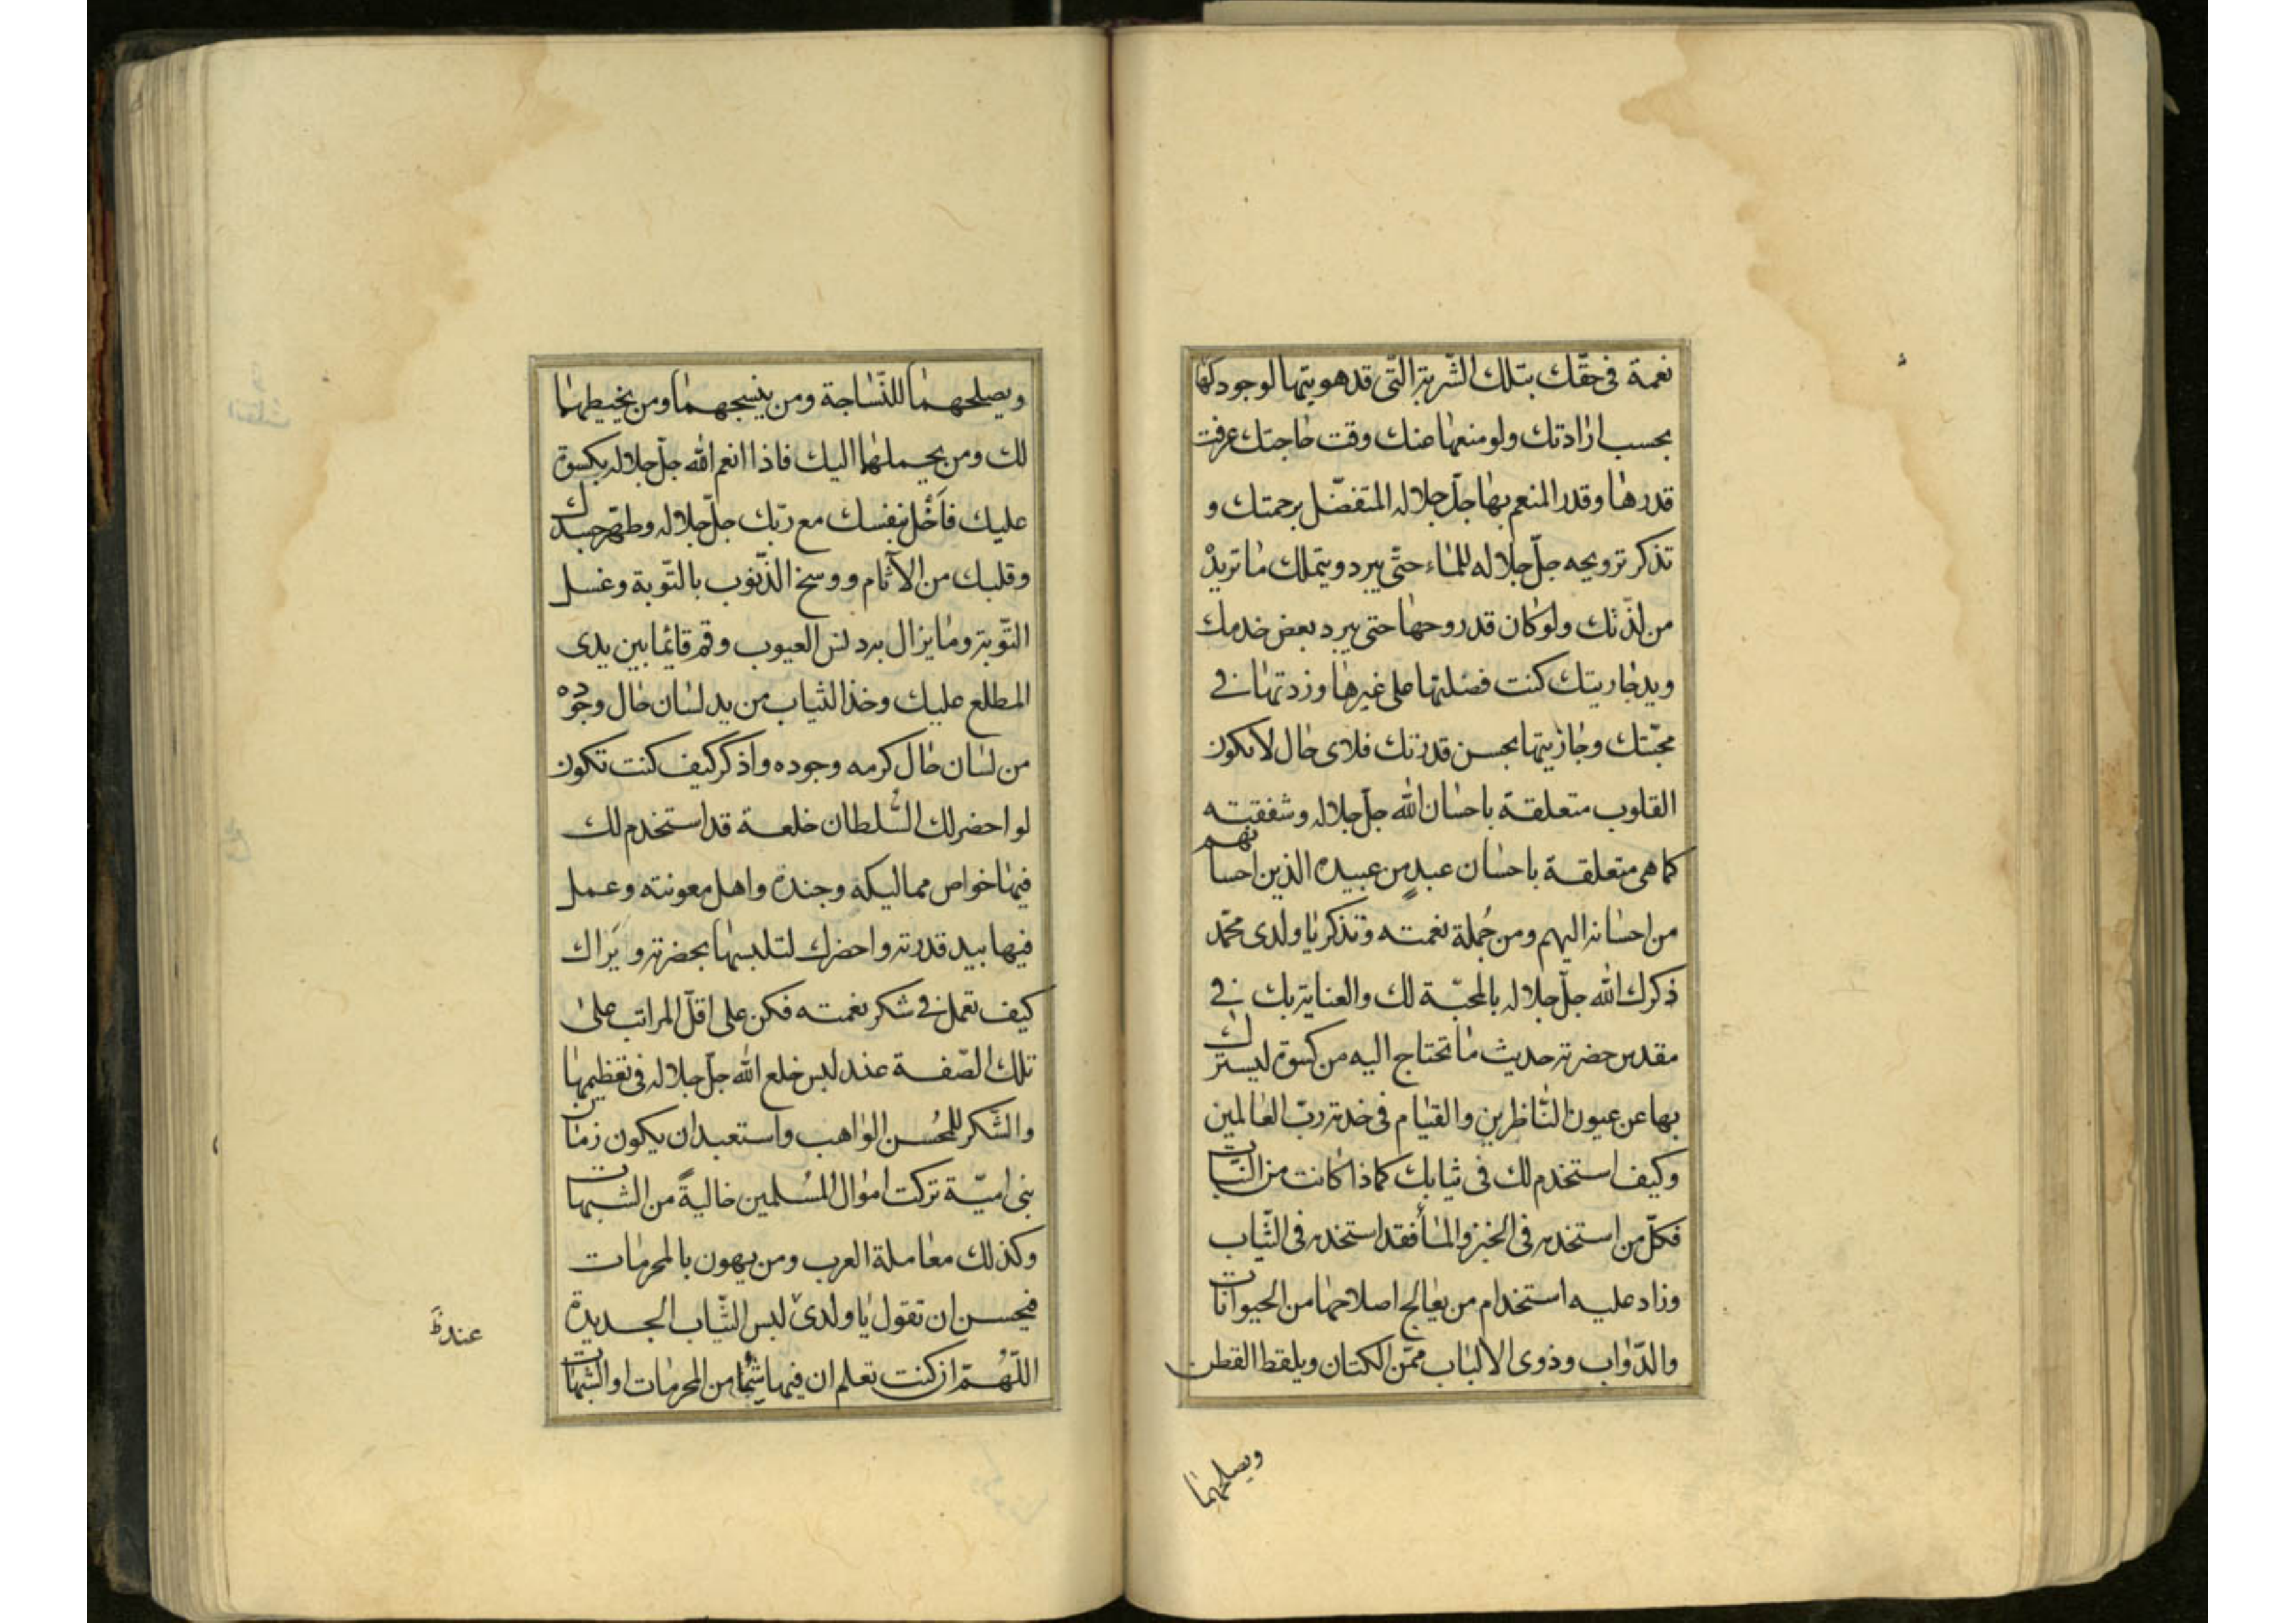 نعمة فى حقّك بتلك الشّربة الّتى قد هويتها لوجود كلها
بحسب ارادتك ولو منعها عنك وقت حاجتك عرفت
قدرها وقدر المنعم بها جلّ جلاله المتفضّل برحمتك و
تذكر ترويحه جلّ جلاله للماء حتّى يبرد ويتم لك ما تريدْ
من لذّتك ولو كان قد روحها حتى يبرد بعض خدمك
ويد جاريتك كنت فضلتها على غيرها وزدتها فى
محبّتك وجازيتها بحسن قدرتك فلاى حال لا تكون
القلوب متعلقة باحسان الله جلّ جلاله وشفقته
كما هى متعلقة باحسان عبدٍ من عبيده الذين احسانهم
من احسانه اليهم ومن جُملة نعمته وتذكر يا ولدى محمّد
ذكرك الله جلّ جلاله بالمحبّة لك والعناية بك فى
مقدس حضرته حديث ما تحتاج اليه من كسوة ليسترك
بها عن عيون النّاظرين والقيام فى خدمة ربّ العالمين
وكيف استخدم لك فى ثيابك كما ذا كانت من النبات
فكلّ من استخدمه فى الخبز والمأ فقد استخدمه فى الثّياب
وزاد عليه استخدام من يعالج اصلاحها من الحيوانات
والدّواب وذوى الالباب ممّن الكتان ويلقط القطن
ويصلحهما
ويصلحهما للنّساجة ومن ينسجهما ومن يخيطهما
لك ومن يحملهما اليك فاذا انعم الله جلّ جلاله بكسوة
عليك فأخْل بنفسك مع ربّك جلّ جلاله وطهّر جسدك
وقلبك من الآثام ووسخ الذّنوب بالتّوبة وغسل
التّوبة وما يزال به دنس العيوب وقم قائما بين يدى
المطلع عليك وخذ الثياب من يد لسان حال وجوده
من لسان حال كرمه وجوده واذكر كيف كنت تكون
لو احضر لك السّلطان خلعة قد استخدم لك
فيها خواص مماليكه وجنده واهل معونته وعمل
فيها بيد قدرته واحضرك لتلبسها بحضرته و يَراك
كيف تعمل فى شكر نعمته فكن على اقلّ المراتب على
تلك الصّفة عند لبس خلع الله جلّ جلاله فى تعظيمها
والشّكر للمُحسن الواهب واستعبد ان يكون زمان
بنى اميّة تركت اموال المُسلمين خاليةً من الشبهات
وكذلك معاملة العرب ومن يهون بالمحرمات
فيحسن ان تقول يا ولدى لبس الثّياب الجديدة
اللّهُمّ ان كنت تعلم ان فيها شيئا من المحرمات او الشبهات